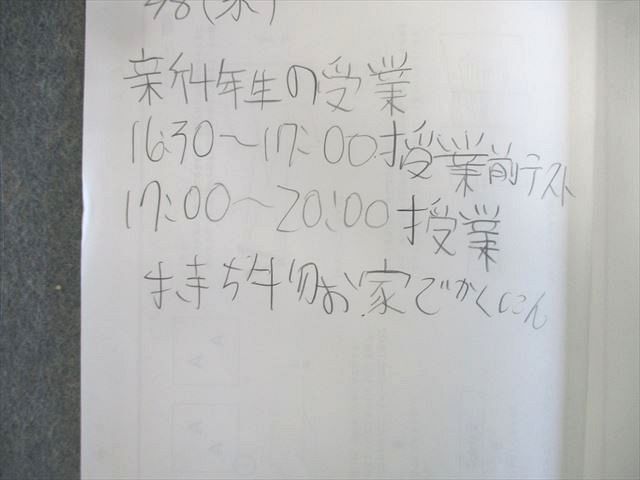 新4年生の受業
16:30～17:00授業前テスト
17:00～20:00授業
持ち物お家でかくにん